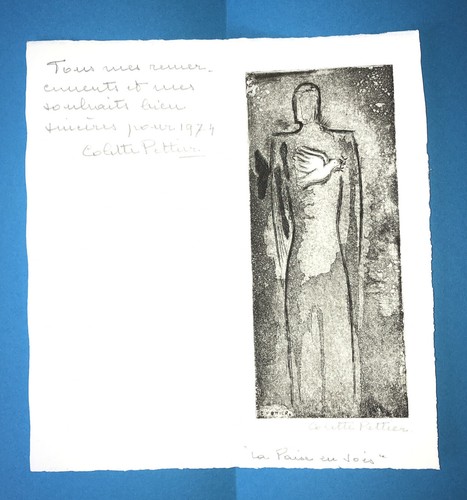 Tous mes remer-
ciements et mes
souhaits bien
sincères pour 1974
Colette Pettier
Colette Pettier
"La Paix en soi"